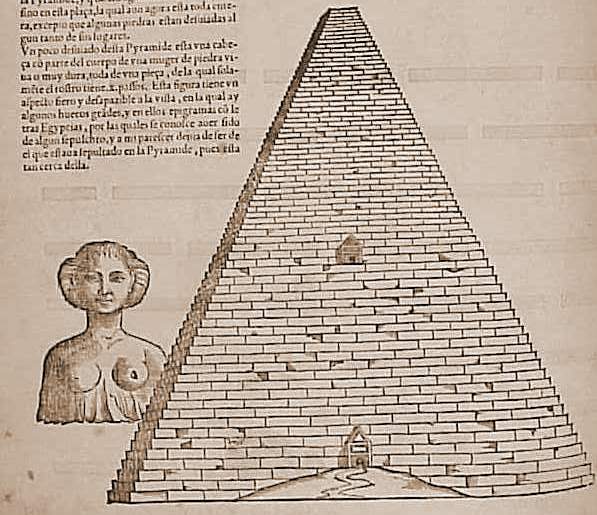 sino en esta plaça, la qual aun agora esta toda ente-
ra, excepto que algunas piedras estan desuiadas al
gun tanto de sus lugares.
Vn poco desuiado desta Pyramide esta vna cabe-
ça cō parte del cuerpo de vna muger de piedra vi-
ua o muy dura, toda de vna pieça, de la qual sola-
mēte el rostro tiene .x. passos. Esta figura tiene vn
aspecto fiero y desapazible a la vista, en la qual ay
algunos huecos grādes, y en ellos epigramas cō le
tras Egyptias, por las quales se conosce auer sido
de algun sepulchro, y a mi parescer deuia de ser de
el que estaua sepultado en la Pyramide, pues esta
tan cerca della.